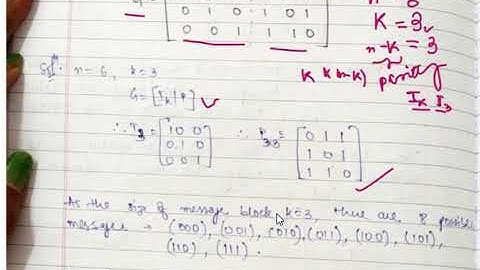 G =
0 1 0 1 0 1
0 0 1 1 1 0
K = 3
n-K = 3
K × (n-K) parity
I_K I_3
Solⁿ: n = 6, k = 3
G = [I_k | P]
∴ I_3 = [1 0 0
0 1 0
0 0 1]
∴ P_33 = [0 1 1
1 0 1
1 1 0]
As the size of message block k = 3, there are 8 possible
messages → (000), (001), (010), (011), (100), (101),
(110), (111).